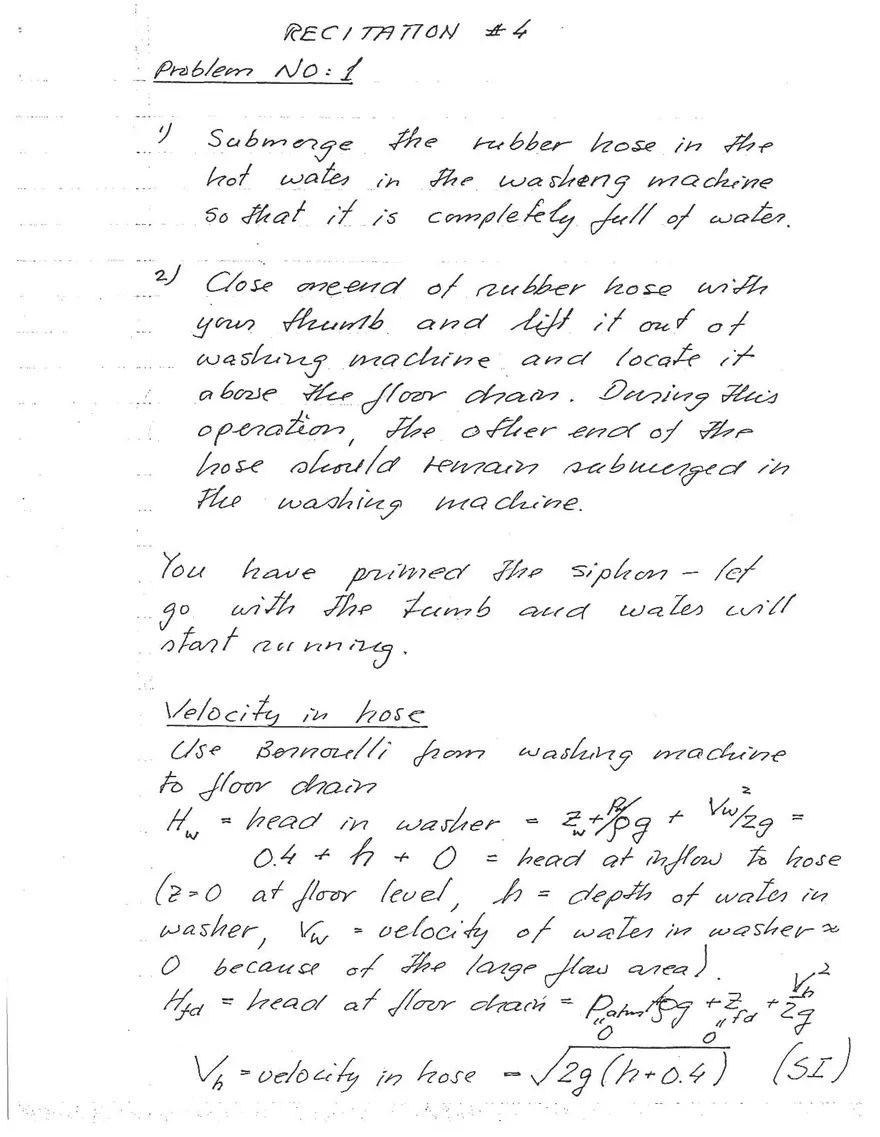 RECITATION #4
Problem NO: 1
1) Submerge the rubber hose in the
hot water in the washing machine
so that it is completely full of water.
2) Close one end of rubber hose with
your thumb and lift it out of
washing machine and locate it
above the floor drain. During this
operation, the other end of the
hose should remain submerged in
the washing machine.
You have primed the siphon - let
go with the tumb and water will
start running.
Velocity in hose
Use Bernoulli from washing machine
to floor drain
H_w = head in washer = z_w + p_w/ρg + V_w²/2g =
0.4 + h + 0 = head at inflow to hose
(z=0 at floor level, h = depth of water in
washer, V_w = velocity of water in washer ≈
0 because of the large flow area).
H_fd = head at floor drain = p_atm/ρg + z_fd + V_h²/2g
"0 "0
V_h = velocity in hose = √2g(h+0.4) (SI)